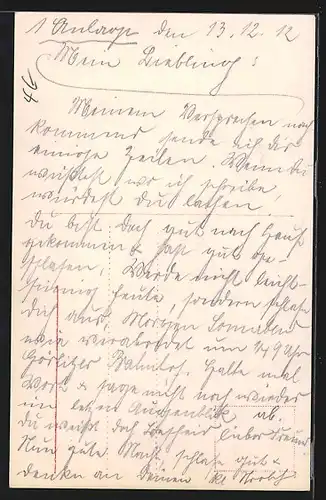 1 Anlage den 13.12.12
Mein Liebling!
46
Meinem Versprechen nach
kommend sende ich dir
einige Zeilen. Wenn du
wüßtest wo ich schreibe,
würdest du lachen!
Du bist doch gut nach Haus
gekommen & hast gut ge-
schlafen. Werde nicht leicht-
sinnig heute, sondern schlafe
dich aus. Morgen Sonnabend
wie verabredet um 1/4 9 Uhr
Görlitzer Bahnhof. Halte mal
Wort & sage nicht noch wieder
im letzen Augenblik ab.
du weißt doch Bescheid lieber Freund
Nun gute Nacht schlafe gut &
denke an deinen kl.